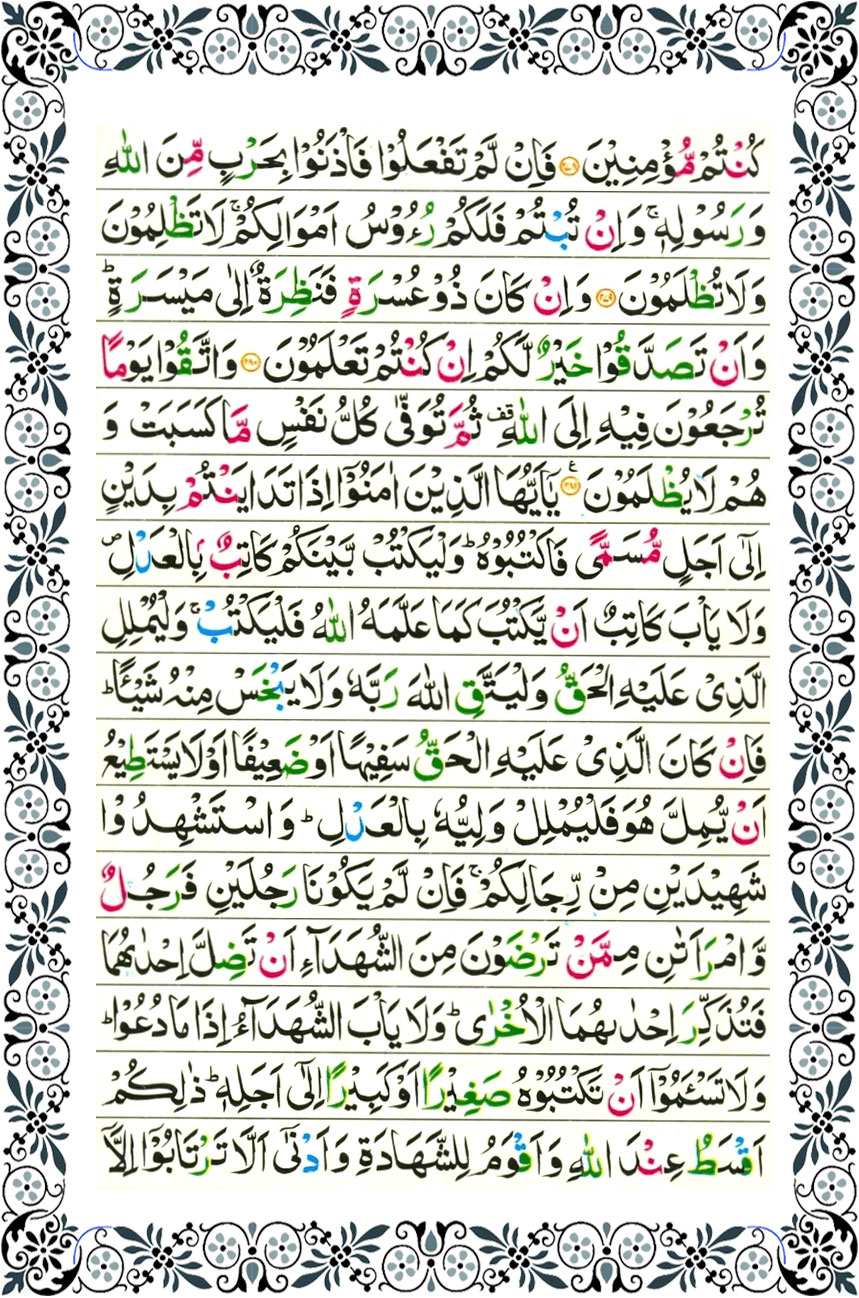 كُنْتُمْ مُّؤْمِنِيْنَ ﴿۲۷۸﴾ فَاِنْ لَّمْ تَفْعَلُوْا فَاْذَنُوْا بِحَرْبٍ مِّنَ اللّٰهِ
وَرَسُوْلِهٖ ۚ وَاِنْ تُبْتُمْ فَلَكُمْ رُءُوْسُ اَمْوَالِكُمْ ۚ لَا تَظْلِمُوْنَ
وَلَا تُظْلَمُوْنَ ﴿۲۷۹﴾ وَاِنْ كَانَ ذُوْ عُسْرَةٍ فَنَظِرَةٌ اِلٰى مَيْسَرَةٍ ؕ
وَاَنْ تَصَدَّقُوْا خَيْرٌ لَّكُمْ اِنْ كُنْتُمْ تَعْلَمُوْنَ ﴿۲۸۰﴾ وَاتَّقُوْا يَوْمًا
تُرْجَعُوْنَ فِيْهِ اِلَى اللّٰهِ قف ثُمَّ تُوَفّٰى كُلُّ نَفْسٍ مَّا كَسَبَتْ وَ
هُمْ لَا يُظْلَمُوْنَ ﴿۲۸۱﴾ ع يٰۤاَيُّهَا الَّذِيْنَ اٰمَنُوْۤا اِذَا تَدَايَنْتُمْ بِدَيْنٍ
اِلٰۤى اَجَلٍ مُّسَمًّى فَاكْتُبُوْهُ ؕ وَلْيَكْتُبْ بَّيْنَكُمْ كَاتِبٌۢ بِالْعَدْلِ ۪
وَلَا يَاْبَ كَاتِبٌ اَنْ يَّكْتُبَ كَمَا عَلَّمَهُ اللّٰهُ فَلْيَكْتُبْ ۚ وَلْيُمْلِلِ
الَّذِيْ عَلَيْهِ الْحَقُّ وَلْيَتَّقِ اللّٰهَ رَبَّهٗ وَلَا يَبْخَسْ مِنْهُ شَيْئًا ؕ
فَاِنْ كَانَ الَّذِيْ عَلَيْهِ الْحَقُّ سَفِيْهًا اَوْ ضَعِيْفًا اَوْ لَا يَسْتَطِيْعُ
اَنْ يُّمِلَّ هُوَ فَلْيُمْلِلْ وَلِيُّهٗ بِالْعَدْلِ ؕ وَاسْتَشْهِدُوْا
شَهِيْدَيْنِ مِنْ رِّجَالِكُمْ ۚ فَاِنْ لَّمْ يَكُوْنَا رَجُلَيْنِ فَرَجُلٌ
وَّامْرَاَتٰنِ مِمَّنْ تَرْضَوْنَ مِنَ الشُّهَدَآءِ اَنْ تَضِلَّ اِحْدٰىهُمَا
فَتُذَكِّرَ اِحْدٰىهُمَا الْاُخْرٰى ؕ وَلَا يَاْبَ الشُّهَدَآءُ اِذَا مَا دُعُوْا ؕ
وَلَا تَسْئَمُوْۤا اَنْ تَكْتُبُوْهُ صَغِيْرًا اَوْ كَبِيْرًا اِلٰۤى اَجَلِهٖ ؕ ذٰلِكُمْ
اَقْسَطُ عِنْدَ اللّٰهِ وَاَقْوَمُ لِلشَّهَادَةِ وَاَدْنٰۤى اَلَّا تَرْتَابُوْۤا اِلَّاۤ